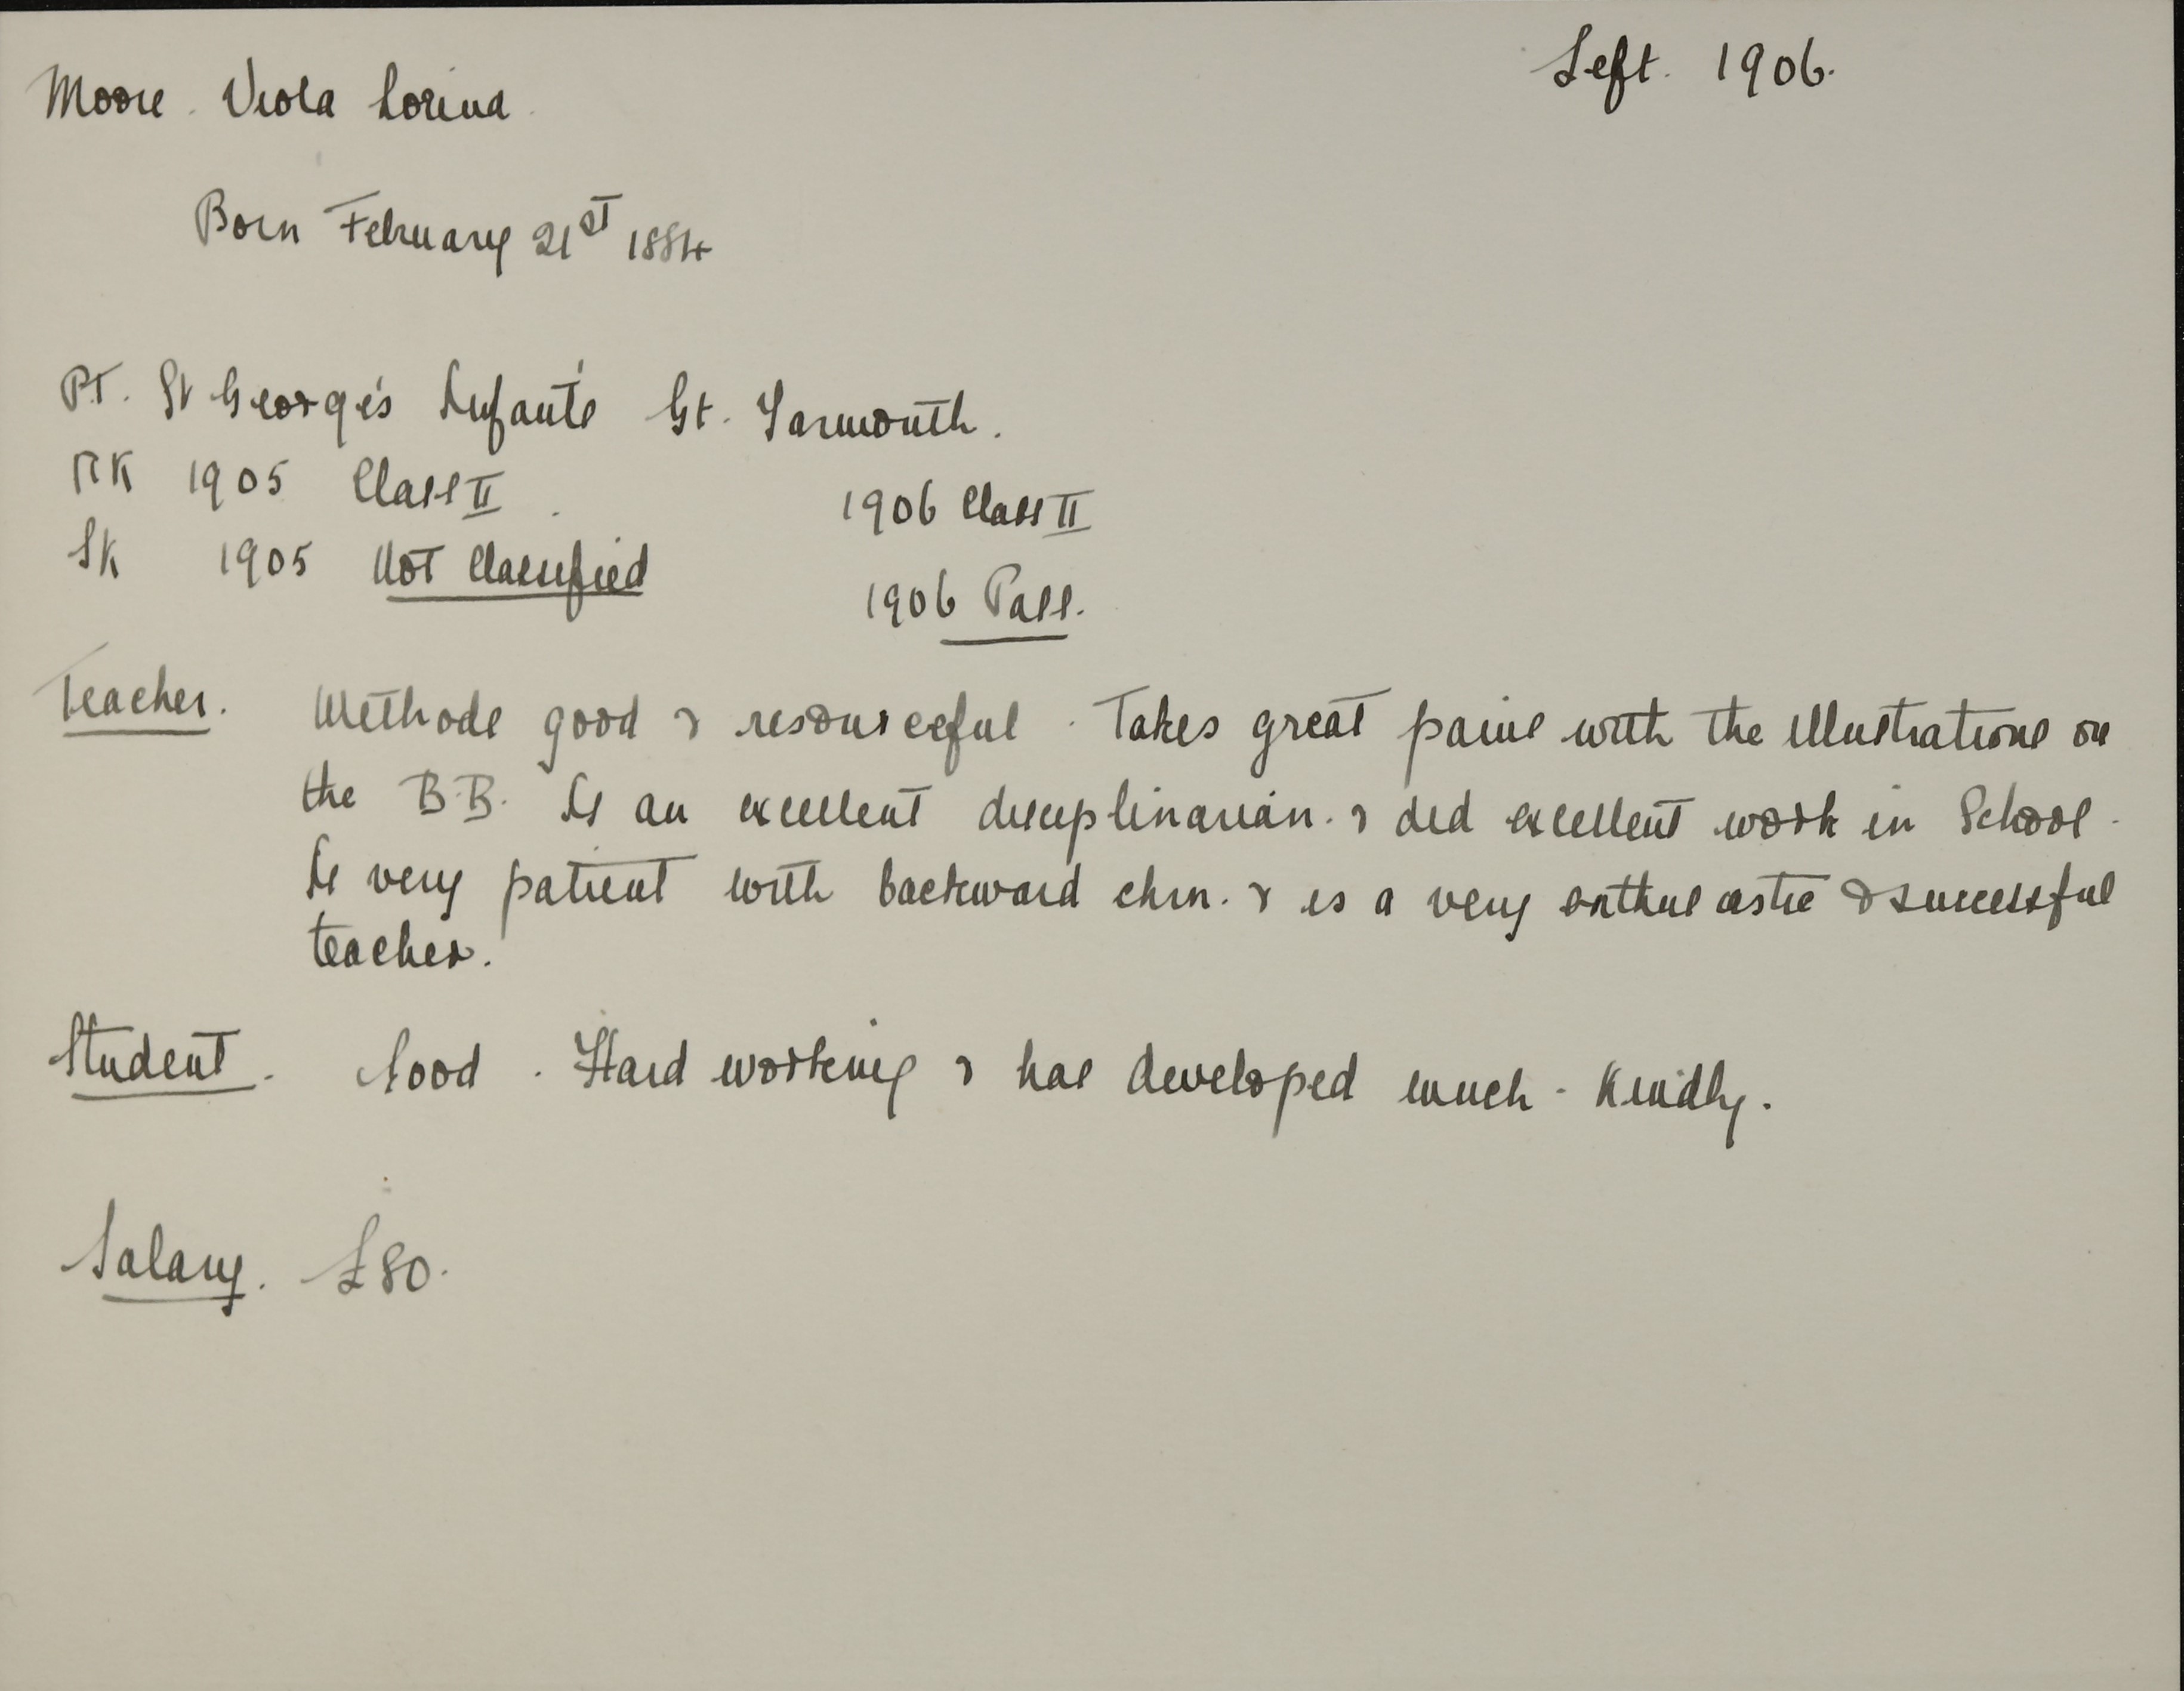 Left. 1906.
Moore. Viola Lorina.
Born February 21st 1884
P.T. St George's Infants' Gt. Yarmouth.
RK 1905 Class II. 1906 Class II
SK 1905 Not Classified 1906 Pass.
Teacher. Methods good & resourceful. Takes great pains with the illustrations on
the B.B. Is an excellent disciplinarian. & did excellent work in School.
Is very patient with backward chn. & is a very enthusiastic & successful
teacher.
Student. Good. Hard working & has developed much. Kindly.
Salary. £80.